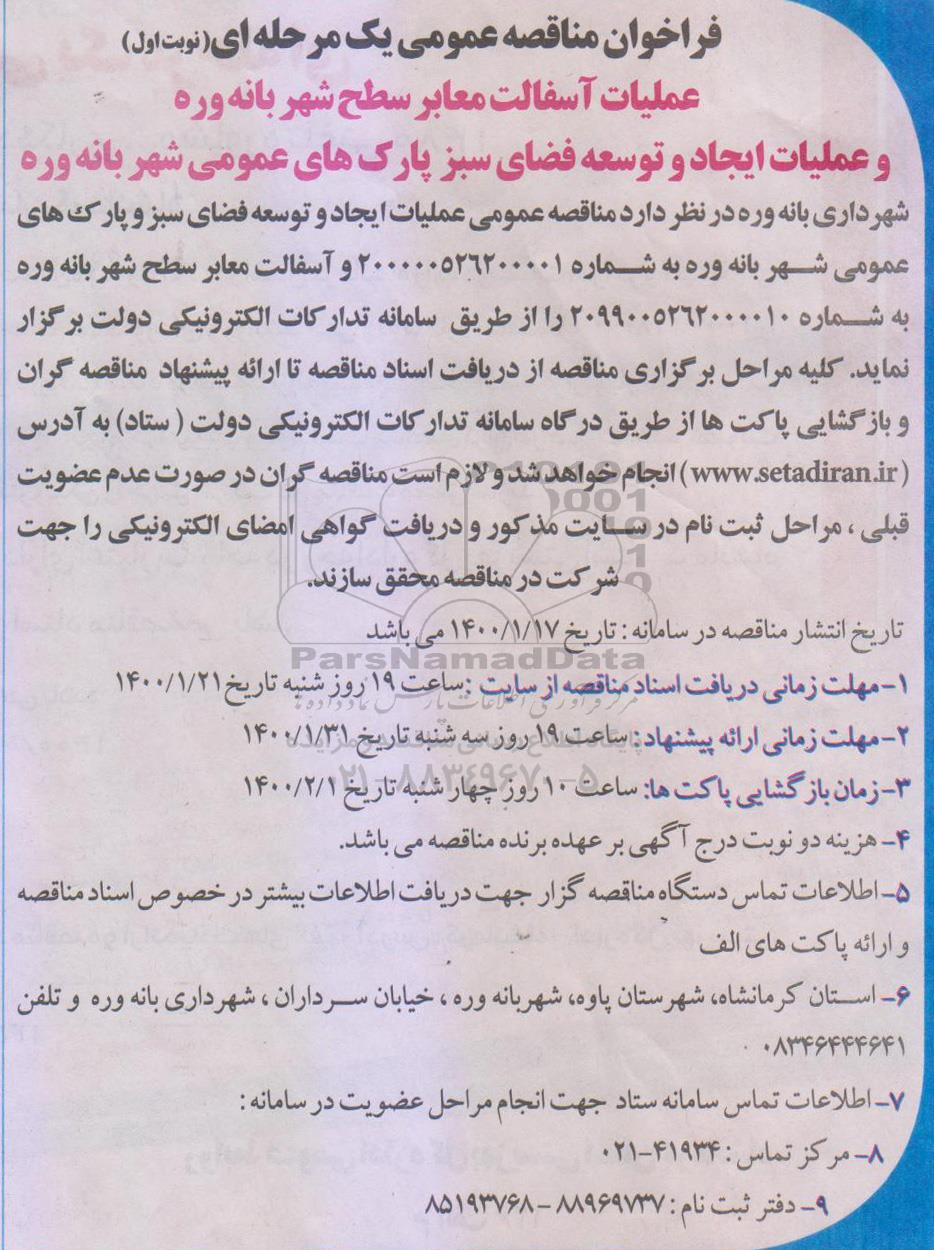 فراخوان مناقصه عمومی یک مرحله ای (نوبت اول)
عملیات آسفالت معابر سطح شهر بانه وره
و عملیات ایجاد و توسعه فضای سبز پارک های عمومی شهر بانه وره
شهرداری بانه وره در نظر دارد مناقصه عمومی عملیات ایجاد و توسعه فضای سبز و پارک های
عمومی شهر بانه وره به شماره ۲۰۰۰۰۰۵۲۶۲۰۰۰۰۰۱ و آسفالت معابر سطح شهر بانه وره
به شماره ۲۰۹۹۰۰۵۲۶۲۰۰۰۰۱۰ را از طریق سامانه تدارکات الکترونیکی دولت برگزار
نماید. کلیه مراحل برگزاری مناقصه از دریافت اسناد مناقصه تا ارائه پیشنهاد مناقصه گران
و بازگشایی پاکت ها از طریق درگاه سامانه تدارکات الکترونیکی دولت ( ستاد) به آدرس
(www.setadiran.ir) انجام خواهد شد و لازم است مناقصه گران در صورت عدم عضویت
قبلی ، مراحل ثبت نام در سایت مذکور و دریافت گواهی امضای الکترونیکی را جهت
شرکت در مناقصه محقق سازند.
تاریخ انتشار مناقصه در سامانه : تاریخ ۱۴۰۰/۱/۱۷ می باشد
ParsNamadData
۱-مهلت زمانی دریافت اسناد مناقصه از سایت :ساعت ۱۹ روز شنبه تاریخ ۱۴۰۰/۱/۲۱
۲-مهلت زمانی ارائه پیشنهاد: ساعت ۱۹ روز سه شنبه تاریخ ۱۴۰۰/۱/۳۱
۳-زمان بازگشایی پاکت ها: ساعت ۱۰ روز چهار شنبه تاریخ ۱۴۰۰/۲/۱
۰۲۱-۸۸۳۴۹۶۷۰-۵
۴- هزینه دو نوبت درج آگهی بر عهده برنده مناقصه می باشد.
۵-اطلاعات تماس دستگاه مناقصه گزار جهت دریافت اطلاعات بیشتر در خصوص اسناد مناقصه
و ارائه پاکت های الف
۶- استان کرمانشاه، شهرستان پاوه، شهربانه وره ، خیابان سرداران ، شهرداری بانه وره و تلفن
۰۸۳۴۶۴۴۴۶۴۱
۷-اطلاعات تماس سامانه ستاد جهت انجام مراحل عضویت در سامانه :
۸- مرکز تماس : ۴۱۹۳۴-۰۲۱
۹- دفتر ثبت نام : ۸۸۹۶۹۷۳۷ - ۸۵۱۹۳۷۶۸